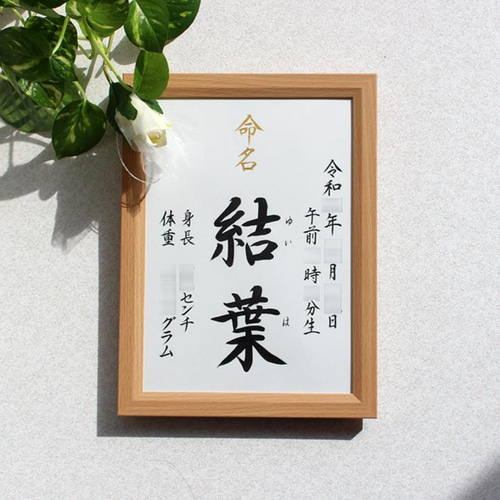 命名
令和 年 月 日
午前 時 分生
結葉
ゆいは
身長 センチ
体重 グラム